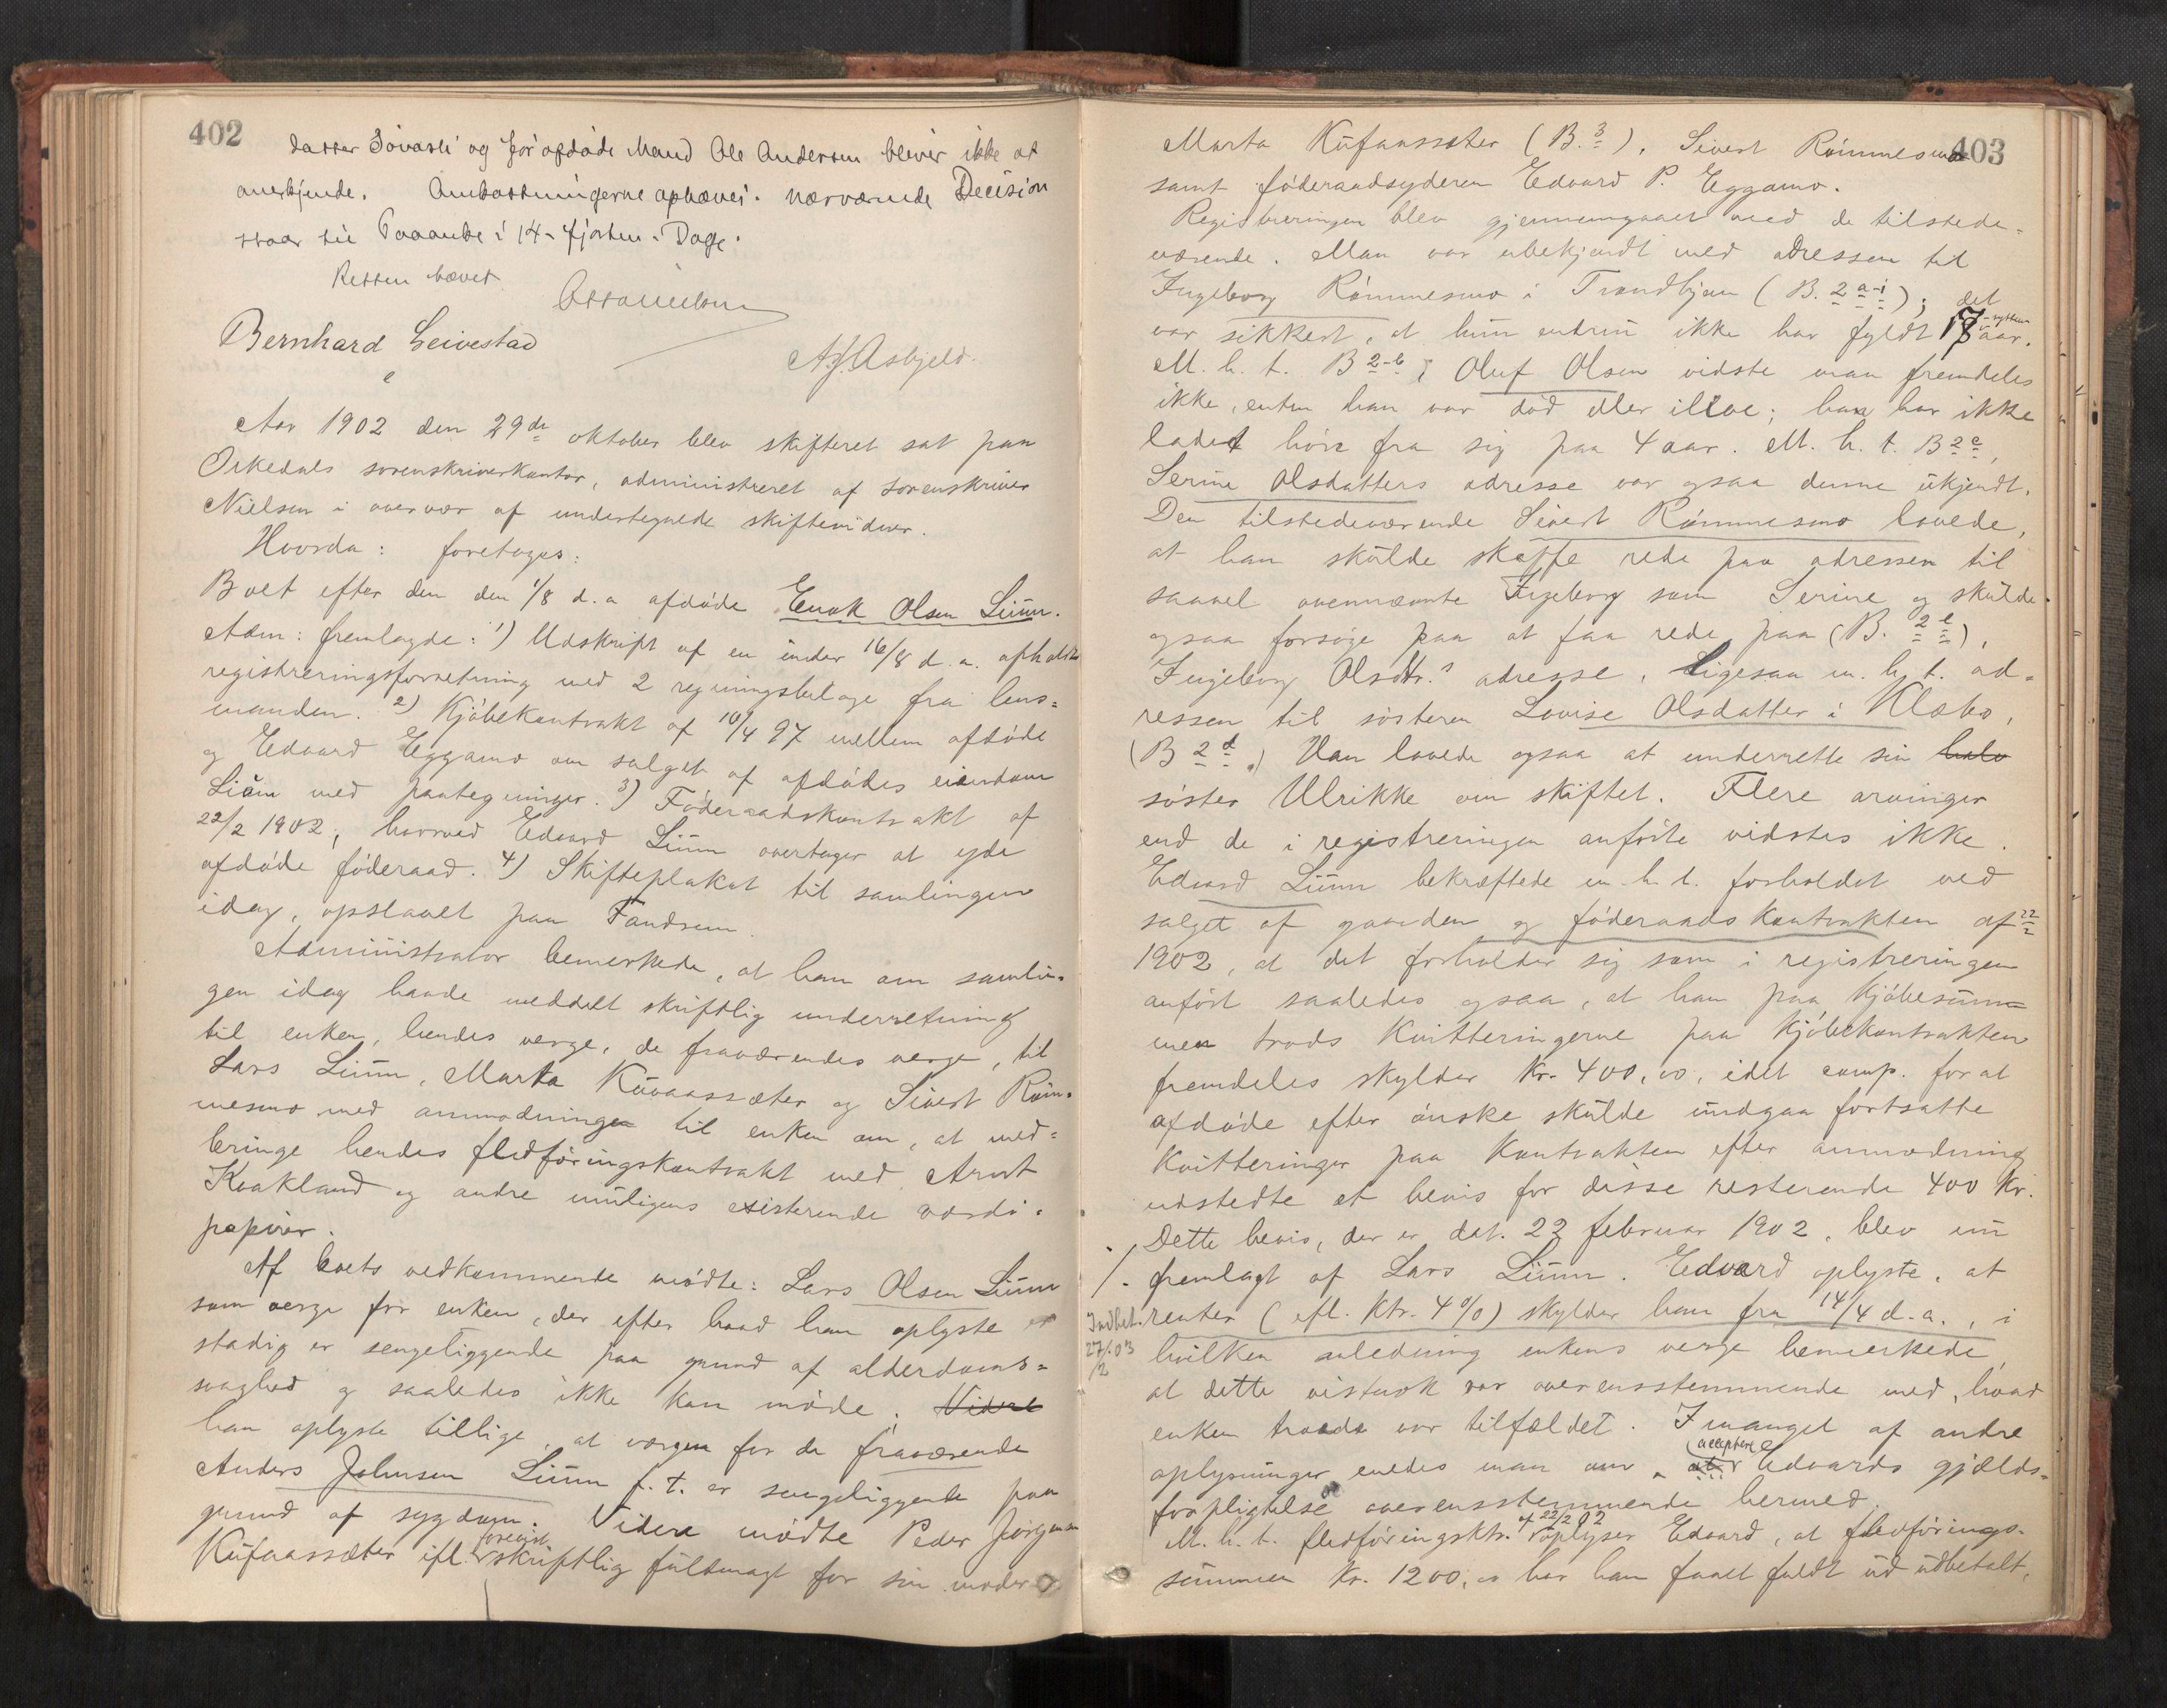 402
datter Sivasli og for afdøde Mand Ole Andersen bliver ikke at
anerkjende. Ombostningerne ophæves. Nærværende Decision
staar til Paaanke i 14 - fjorten - Dage.
Retten hævet
Otto Nielsen
Bernhard Leivestad
A. J. Asbjeld.
Aar 1902 den 29de oktober blev skifteret sat paa
Orkedals sorenskriverkontor, administreret af sorenskriver
Nielsen i overvær af undertegnede skiftevidner.
Hvorda: foretoges:
Boet efter den den 1/8 d. a afdøde Enok Olsen Liøm.
Adm: fremlagde: 1) Udskrift af en under 16/8 d. a. afholdt
registreringsforretning med 2 regningsbilage fra lens=
manden. 2) Kjøbekontrakt af 10/4 97 mellem afdøde
og Edvard Eggamo om salget af afdødes eiendom
Liøm med paategninger. 3) Føderaadskontrakt af
22/2 1902, hvorved Edvard Liøm overtager at yde
afdøde føderaad. 4) Skifteplakat til samlingen
idag, opslaaet paa Fandrem.
Administrator bemerkede, at han om samlin-
gen idag havde meddelt skriftlig underretning
til enken, hendes verge, de fraværendes verge, til
Lars Liøm, Marta Kuvaassæter og Sivert Røm-
mesmo med anmodningen til enken om, at med=
bringe hendes fledføringskontrakt med Arnt
Kvakland og andre muligens existerende værdi-
papirer.
Af boets vedkommende mødte: Lars Olsen Liøm
som verge for enken, der efter hvad han oplyste
stadig er sengeliggende paa grund af alderdoms=
svaghed og saaledes ikke kan møde. Videre
han oplyste tillige, at vergen for de fraværende
Anders Johnsen Liøm f. t. er sengeliggende paa
grund af sygdom. Videre mødte Peder Jørgensen
Kufaassæter ifl. forevist skriftlig fuldmagt for sin moder
403
Marta Kufaassæter (B. 3), Sivert Rømmesmo
samt føderaadsyderen Edvard P. Eggamo.
Registreringen blev gjennemgaaet med de tilstede-
værende. Man var ubekjendt med adressen til
Ingeborg Rømmesmo i Trondhjem (B. 2 a-i); det
var sikkert, at hun endnu ikke har fyldt 17 - sytten - aar.
M. h. t. B 2-b; Oluf Olsen vidste man fremdeles
ikke, enten han var død eller ilive; han har ikke
ladet høre fra sig paa 4 aar. M. h. t. B 2 c,
Serine Olsdatters adresse var ogsaa denne ukjendt.
Den tilstedeværende Sivert Rømmesmo lovede,
at han skulde skaffe rede paa adressen til
saavel ovennævnte Ingeborg som Serine og skulde
ogsaa forsøge paa at faa rede paa (B. 2 e),
Ingeborg Olsdtr.s adresse, Ligesaa m. h. t. ad-
ressen til søsteren Lovise Olsdatter i Klæbo,
(B 2 d.) Han lovede ogsaa at underrette sin halv
søster Ulrikke om skiftet. Flere arvinger
end de i registreringen anførte vidstes ikke.
Edvard Liøm bekræftede m. h. t. forholdet ved
salget af gaarden og føderaadskontrakten af 22/2
1902, at det forholder sig som i registreringen
anført saaledes ogsaa, at han paa kjøbesum=
men trods kvitteringerne paa kjøbekontrakten
fremdeles skylder Kr. 400,00, idet comp. for at
afdøde efter ønske skulde undgaa fortsatte
kvitteringer paa kontrakten efter anmodning
udstedte et bevis for disse resterende 400 kr.
Dette bevis, der er dat. 22 februar 1902, blev nu
./. fremlagt af Lars Liøm. Edvard oplyste, at
Indbet. 27/2 03
renter (efl. Ktr. 4 %) skylder han fra 14/4 d. a., i
hvilken anledning enkens verge bemerkede,
at dette vistnok var overensstemmende med, hvad
enken troede var tilfældet. I mangel af andre
oplysninger enedes man om, at acceptere Edvards gjælds-
forpligtelse overensstemmende hermed.
M. h. t. fledføringsktr. af 22/2 02 oplyser Edvard, at fledførings-
summen Kr. 1200,00 har han faaet fuldt ud udbetalt,